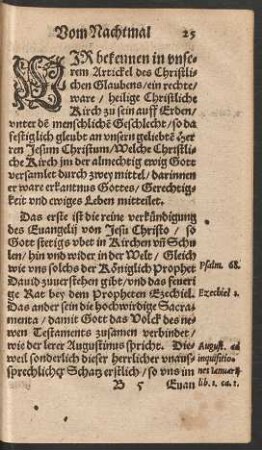 Vom Nachtmal 25
WIR bekennen in vnse-
rem Artickel des Christli-
chen Glaubens / ein rechte /
ware / heilige Christliche
Kirch zu sein auff Erden /
vnter dē menschlichē Geschlecht / so da
festiglich gleubt an vnsern geliebtē Her
ren Jesum Christum / Welche Christli-
che Kirch jm der almechtig ewig Gott
versamlet durch zwey mittel / darinnen
er ware erkantnus Gottes / Gerechtig-
keit vnd ewiges Leben mitteilet.
Das erste ist die reine verkündigung
des Euangelij von Jesu Christo / so
Gott stetigs vbet in Kirchen vn̄ Schu
len / hin vnd wider in der Welt / Gleich
wie vns solchs der Königlich Prophet
Dauid zuuerstehen gibt / vnd das feuri
ge Rat bey dem Propheten Ezechiel.
Das ander sein die hochwirdige Sacra-
menta / damit Gott das Volck des ne-
wen Testaments zusamen verbindet /
wie der lerer Augustinus spricht. Die-
weil sonderlich dieser herrlicher vnaus-
sprechlicher Schatz erstlich / so vns im
B 5 Euan
Psalm. 68.
Ezechiel 1.
August. ad
inquisitio-
nes Ianuarij
lib. 1. ca. 1.